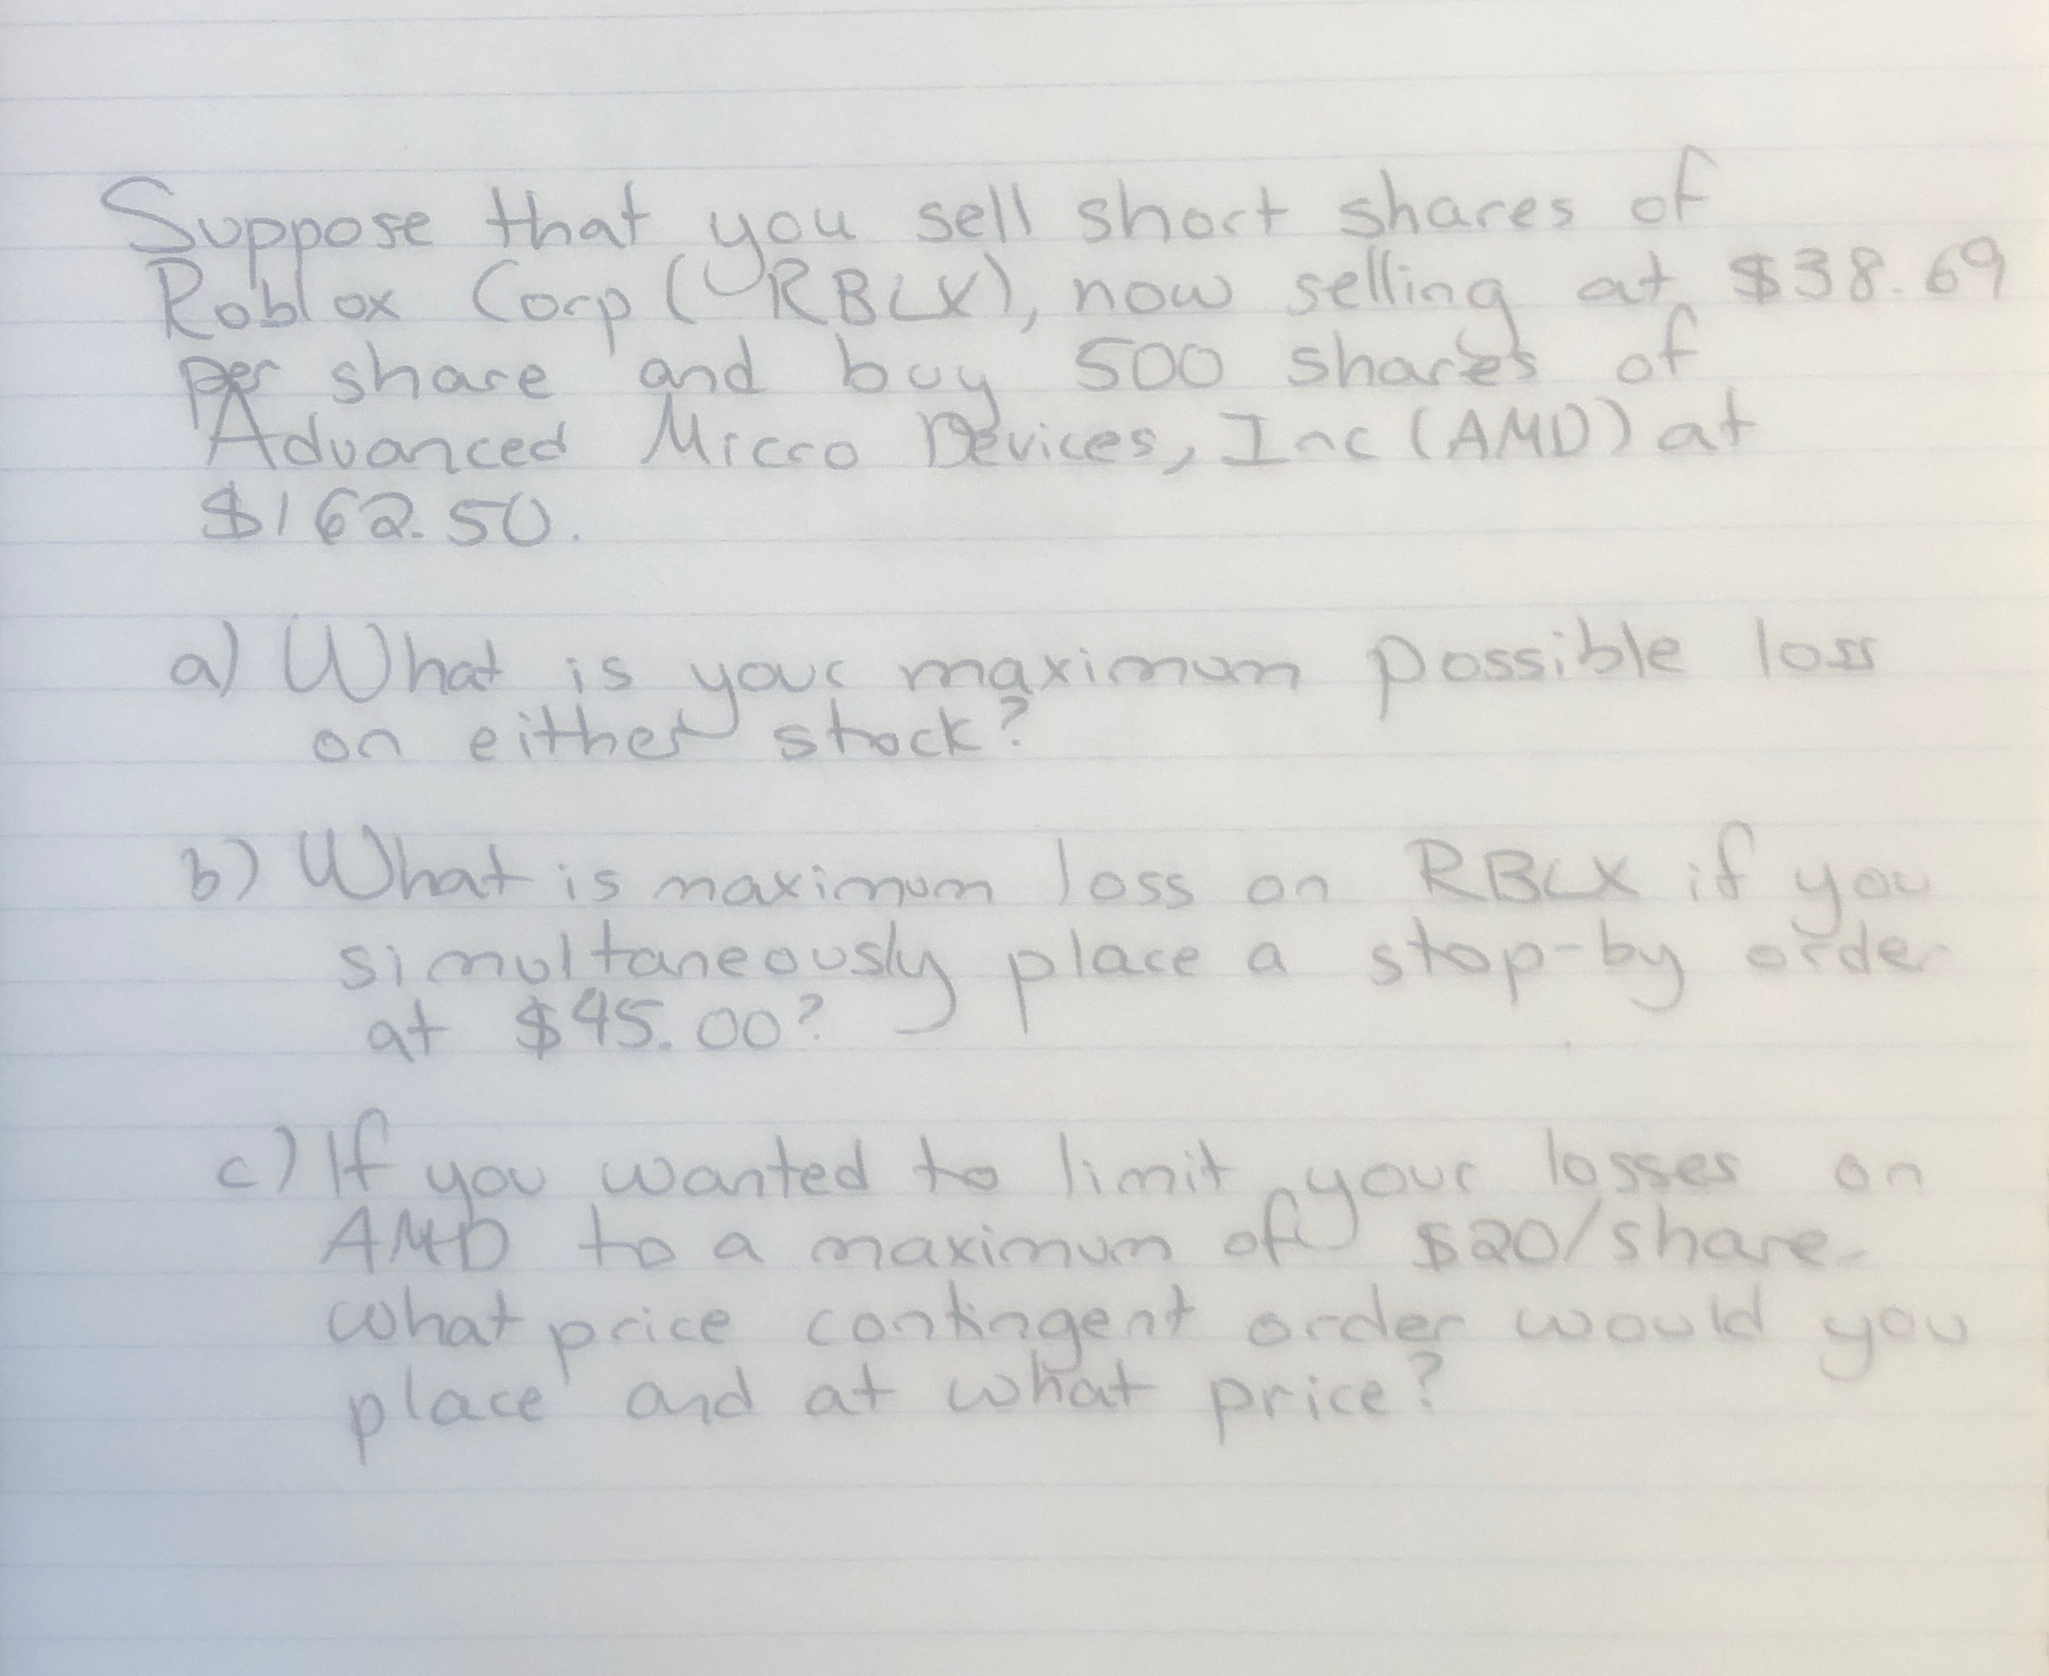 Suppose that you sell short shares of
Roblox Corp (RBLX), now selling at $38.69
per share and buy 500 shares of
Advanced Micro Devices, Inc (AMD) at
$162.50.
a) What is your maximum possible loss
on either stock?
b) What is maximum loss on RBLX if you
simultaneously place a stop-by order
at $45.00?
c) If you wanted to limit your losses on
AMD to a maximum of $20/share.
what price contingent order would you
place and at what price?